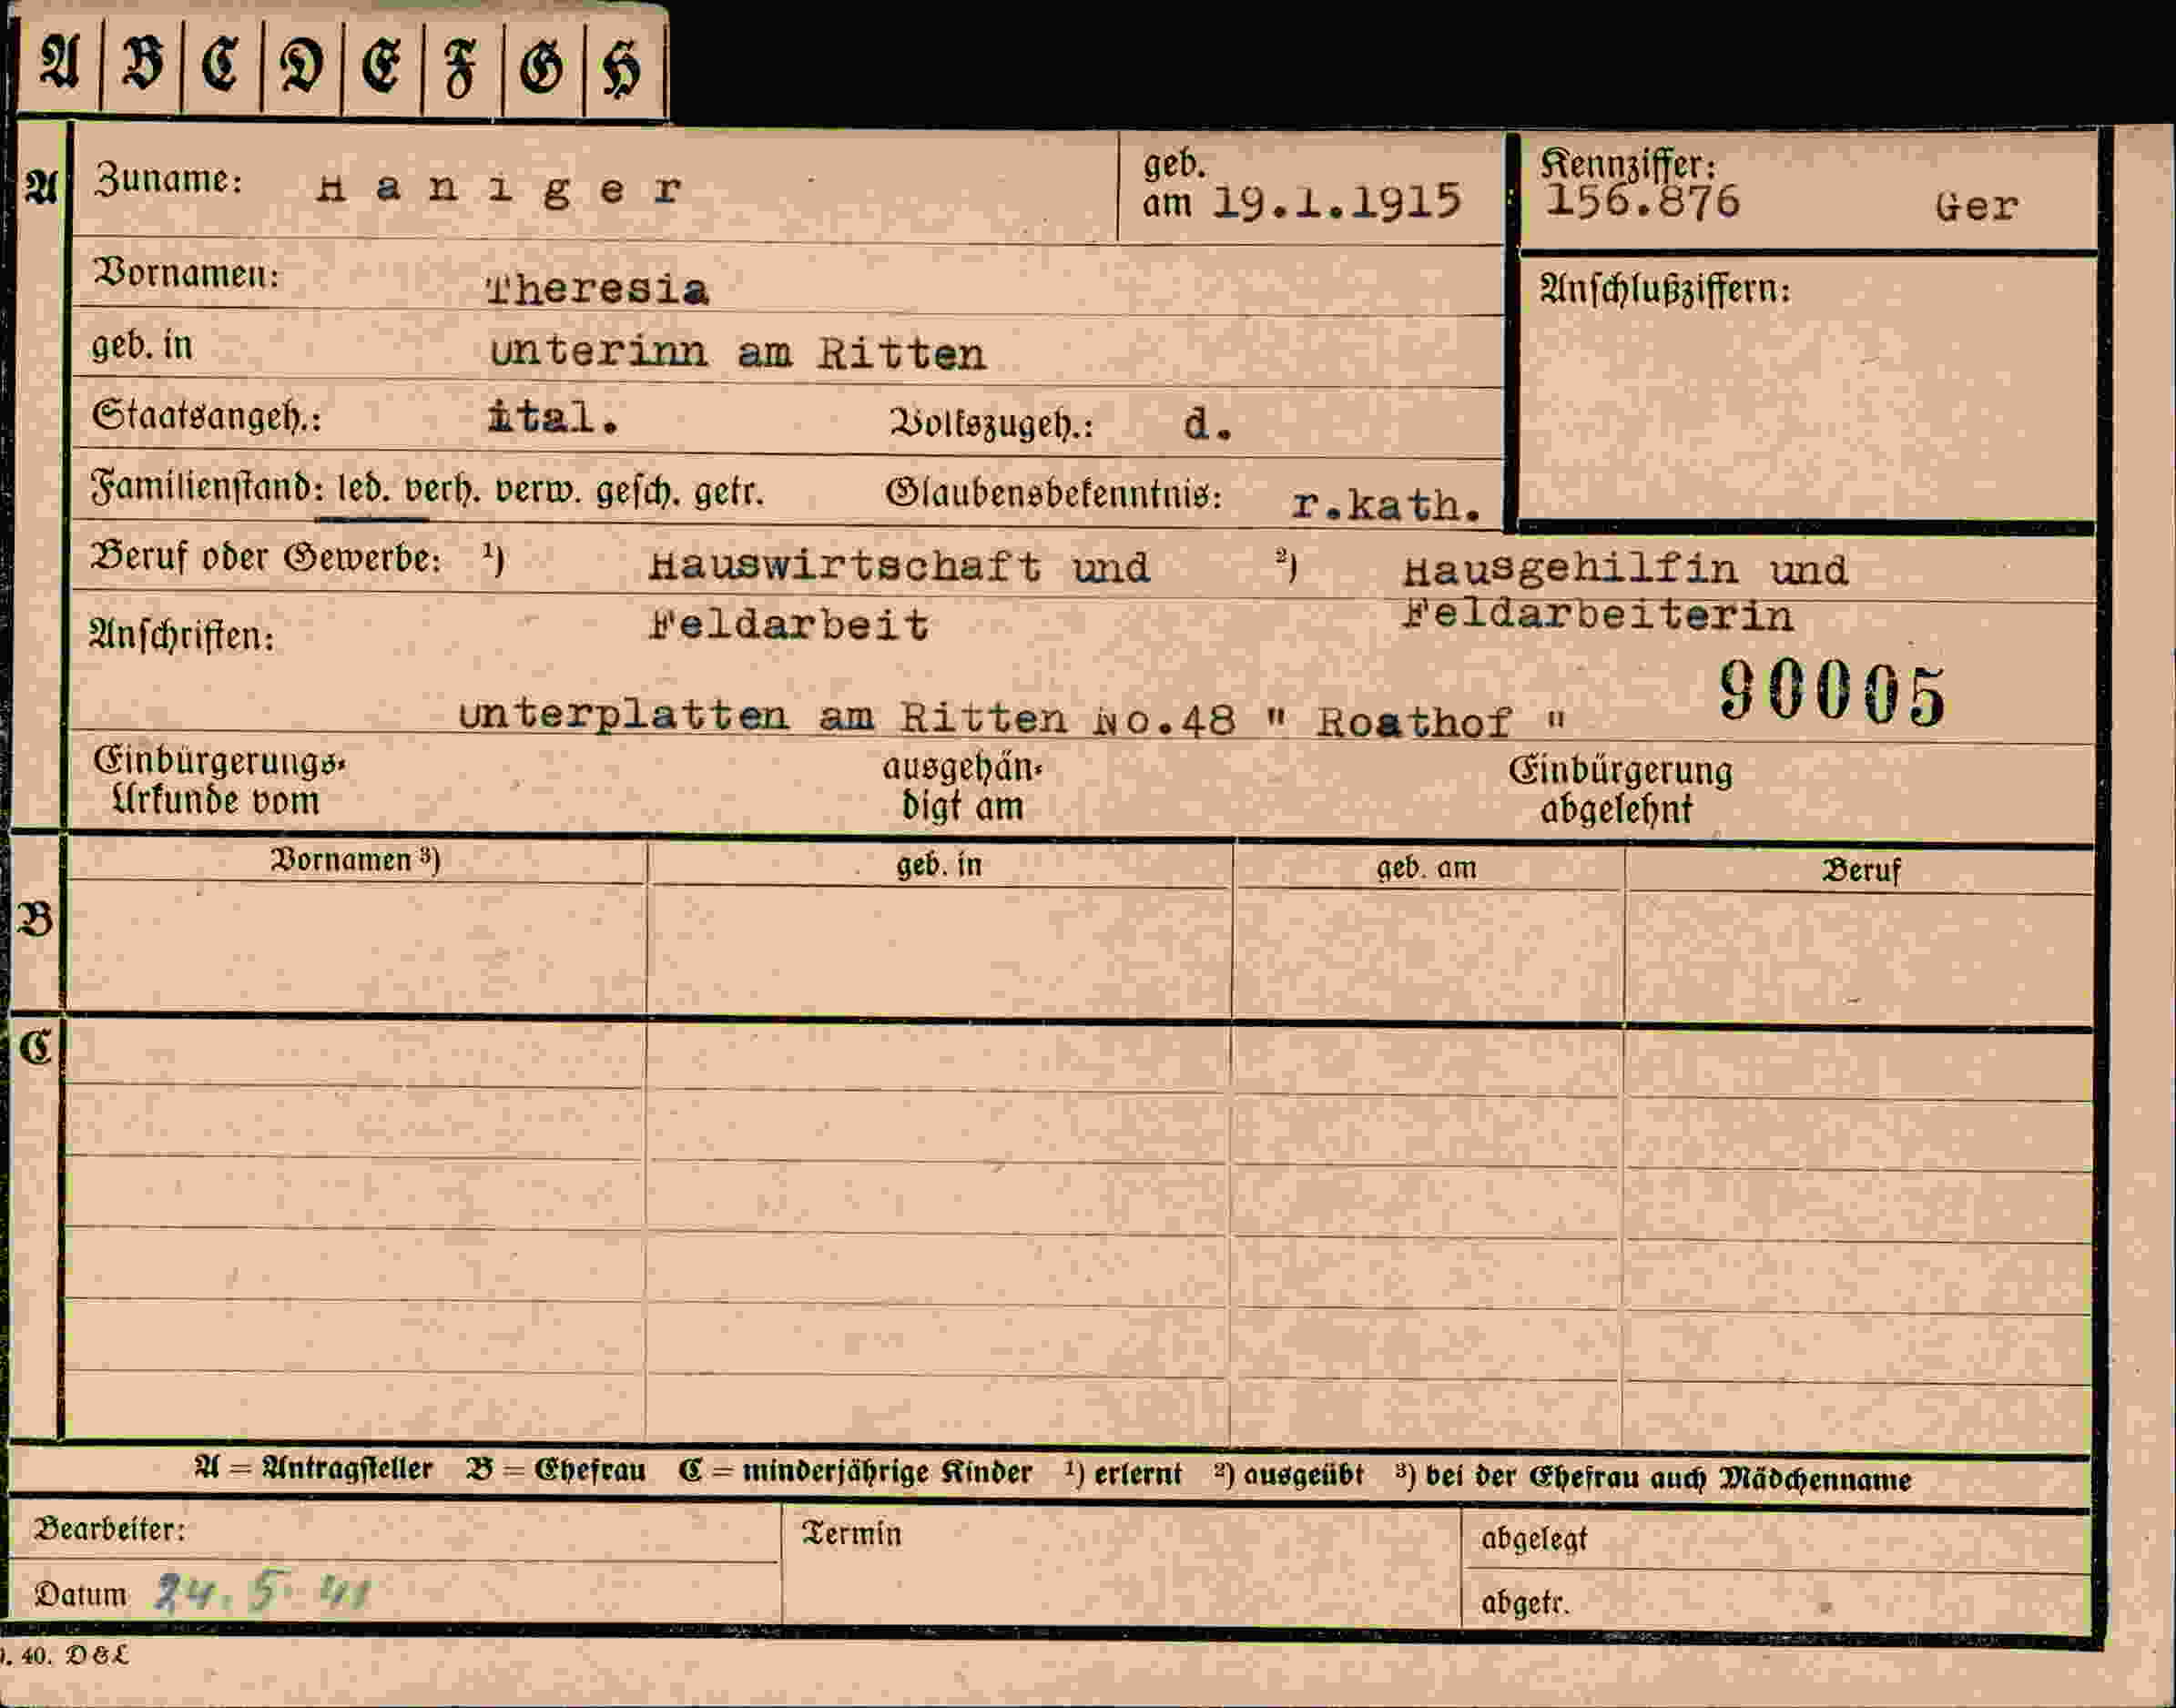 A B C D E F G H
A Zuname: Haniger geb. am 19.1.1915 Kennziffer: 156.876 Ger
Vornamen: Theresia Anschlußziffern:
geb. in Unterinn am Ritten
Staatsangeh.: ital. Volkszugeh.: d.
Familienstand: led. verh. verw. gesch. getr. Glaubensbekenntnis: r.kath.
Beruf oder Gewerbe: ¹) Hauswirtschaft und ²) Hausgehilfin und
Feldarbeit Feldarbeiterin
Anschriften:
90005
Unterplatten am Ritten No.48 " Roathof "
Einbürgerungs- ausgehän- Einbürgerung
Urkunde vom digt am abgelehnt
Vornamen ³) geb. in geb. am Beruf
B
C
A = Antragsteller B = Ehefrau C = minderjährige Kinder ¹) erlernt ²) ausgeübt ³) bei der Ehefrau auch Mädchenname
Bearbeiter: Termin abgelegt
Datum 24. 5. 41 abgetr.
. 40. D & L